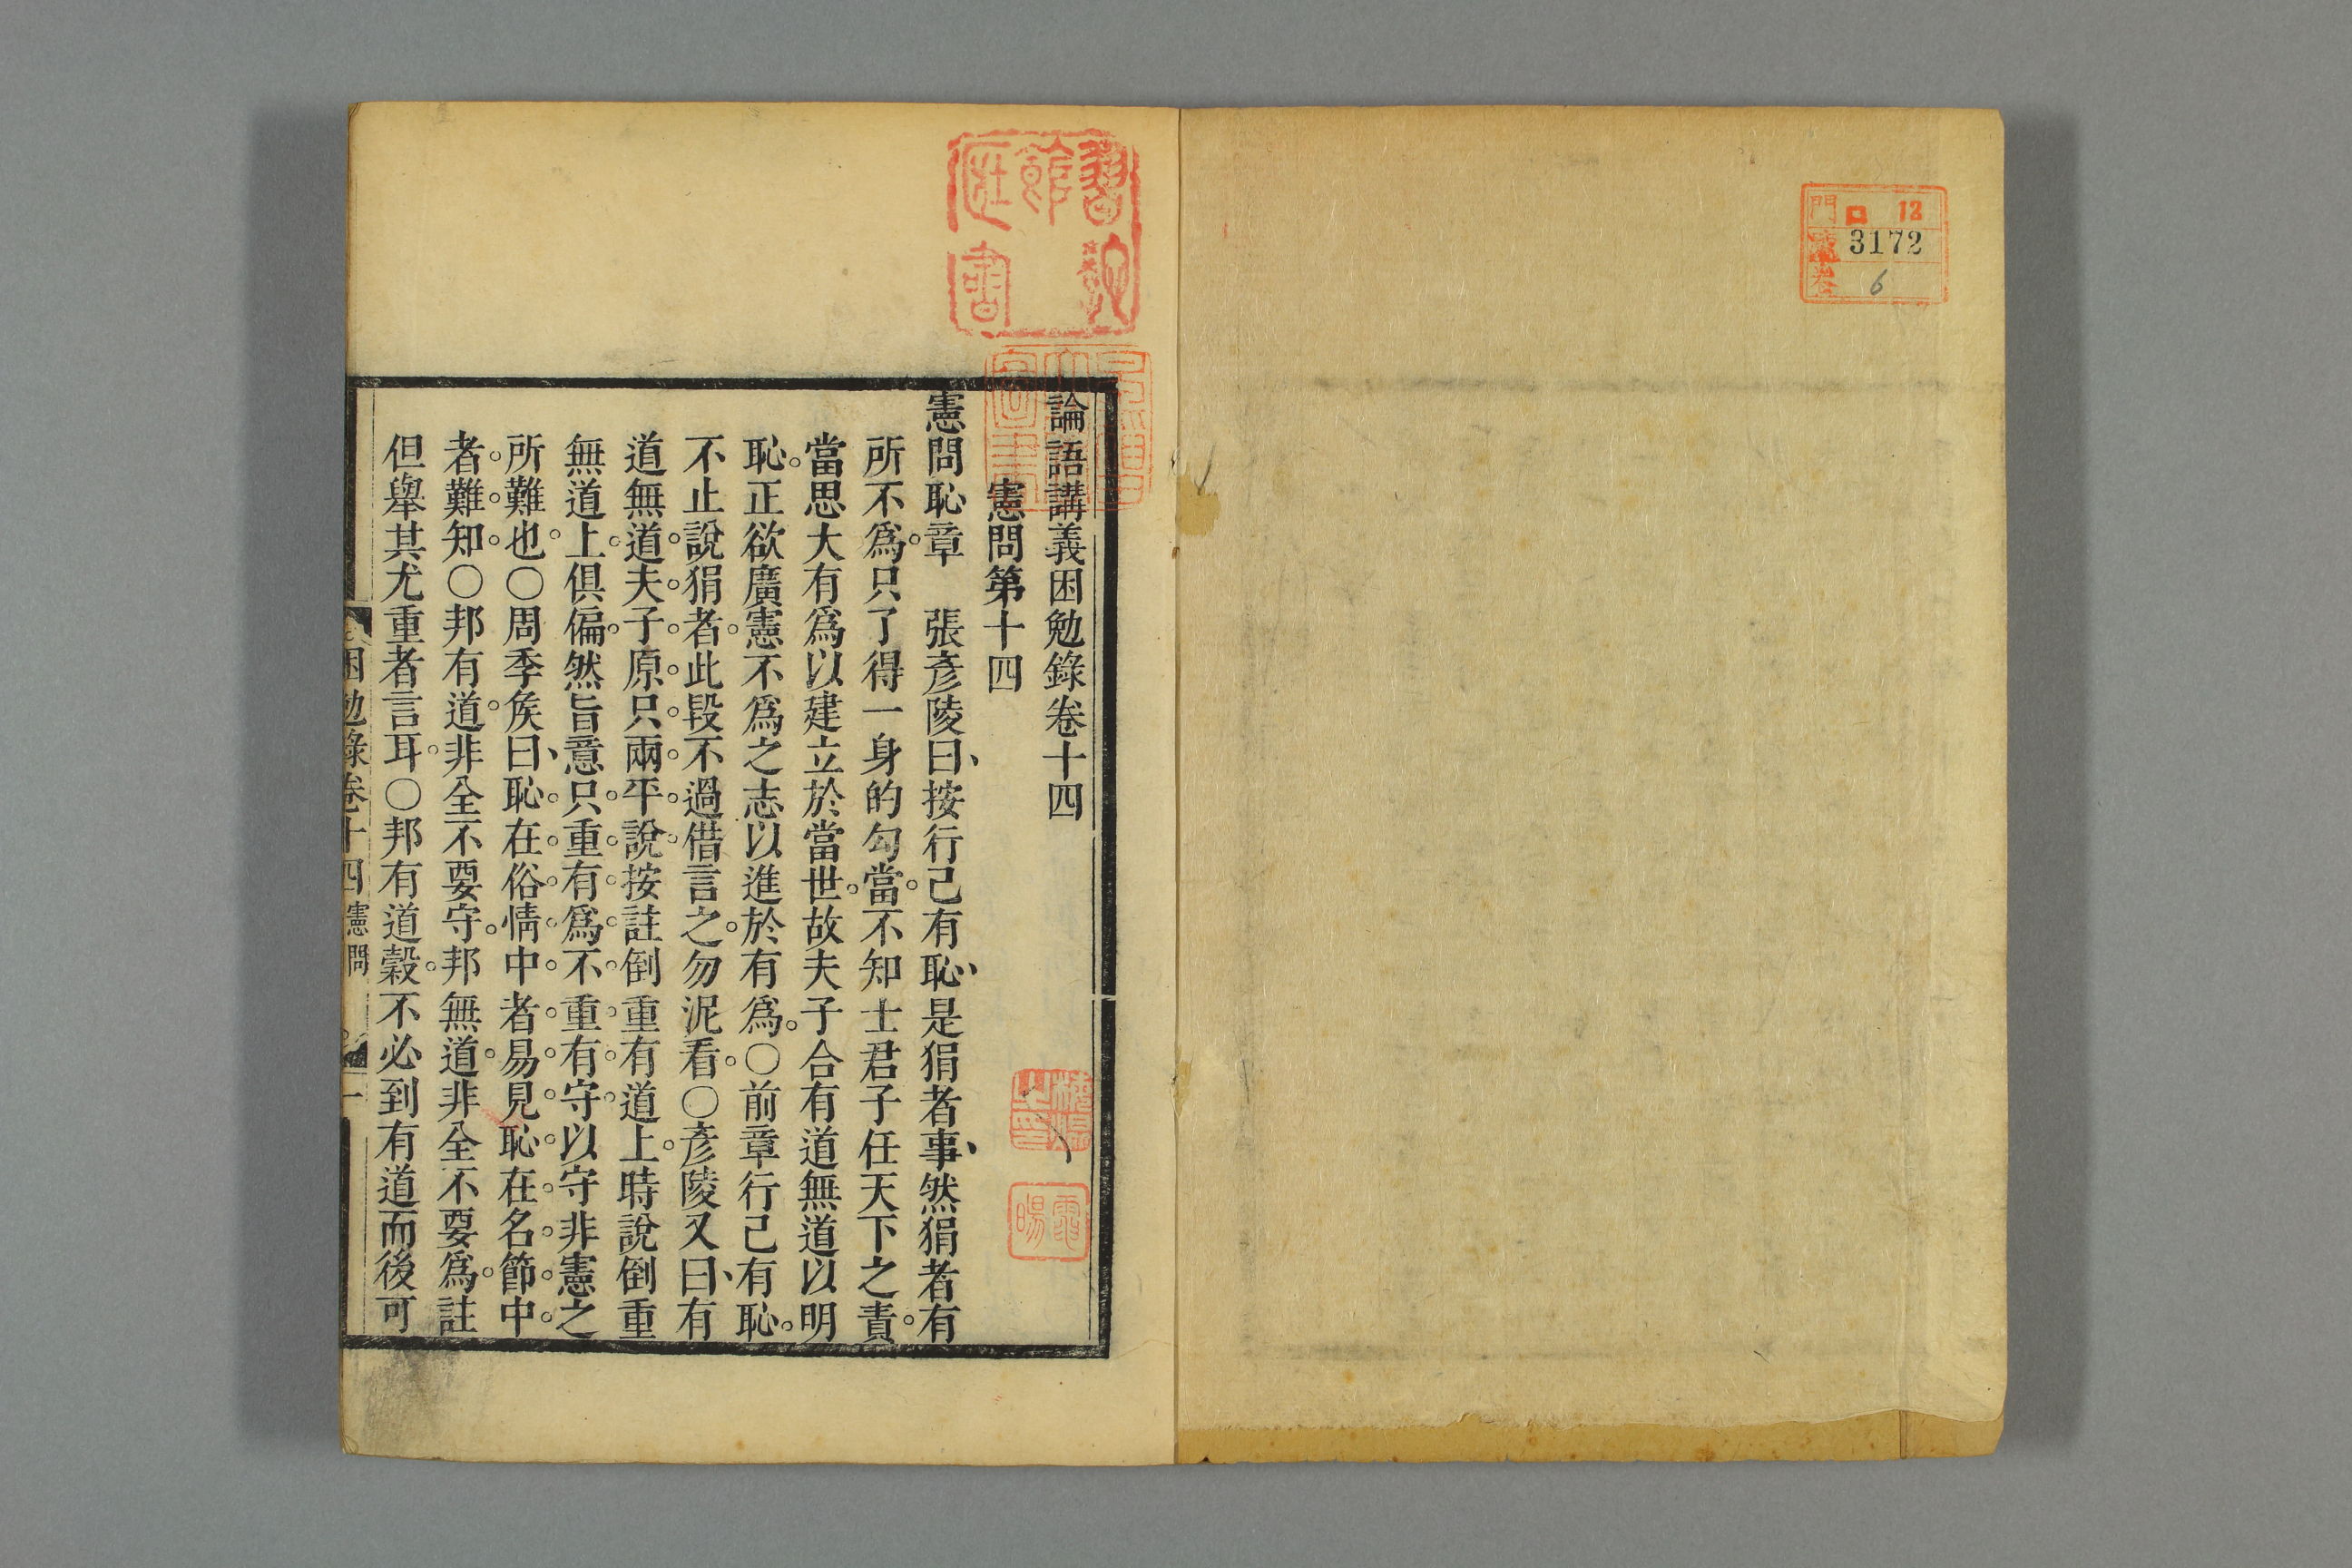 門 ロ 12
號 3172
卷 6
論語講義困勉錄卷十四
憲問第十四
憲問恥章　張彥陵曰、按行己有恥、是狷者事、然狷者有
所不爲。只了得一身的勾當。不知士君子任天下之責。
當思大有爲以建立於當世。故夫子合有道無道以明
恥。正欲廣憲不爲之志以進於有爲。○前章行己有恥。
不止說狷者。此段不過借言之。勿泥看。○彥陵又曰、有
道無道。夫子原只兩平說。按註倒重有道上。時說倒重
無道上。俱偏。然旨意只重有爲。不重有守。以守非憲之
所難也。○周季侯曰、恥在俗情中者易見。恥在名節中
者難知。○邦有道。非全不要守。邦無道。非全不要爲。註
但舉其尤重者言耳。○邦有道穀。不必到有道而後可
困勉錄卷十四 憲問 一